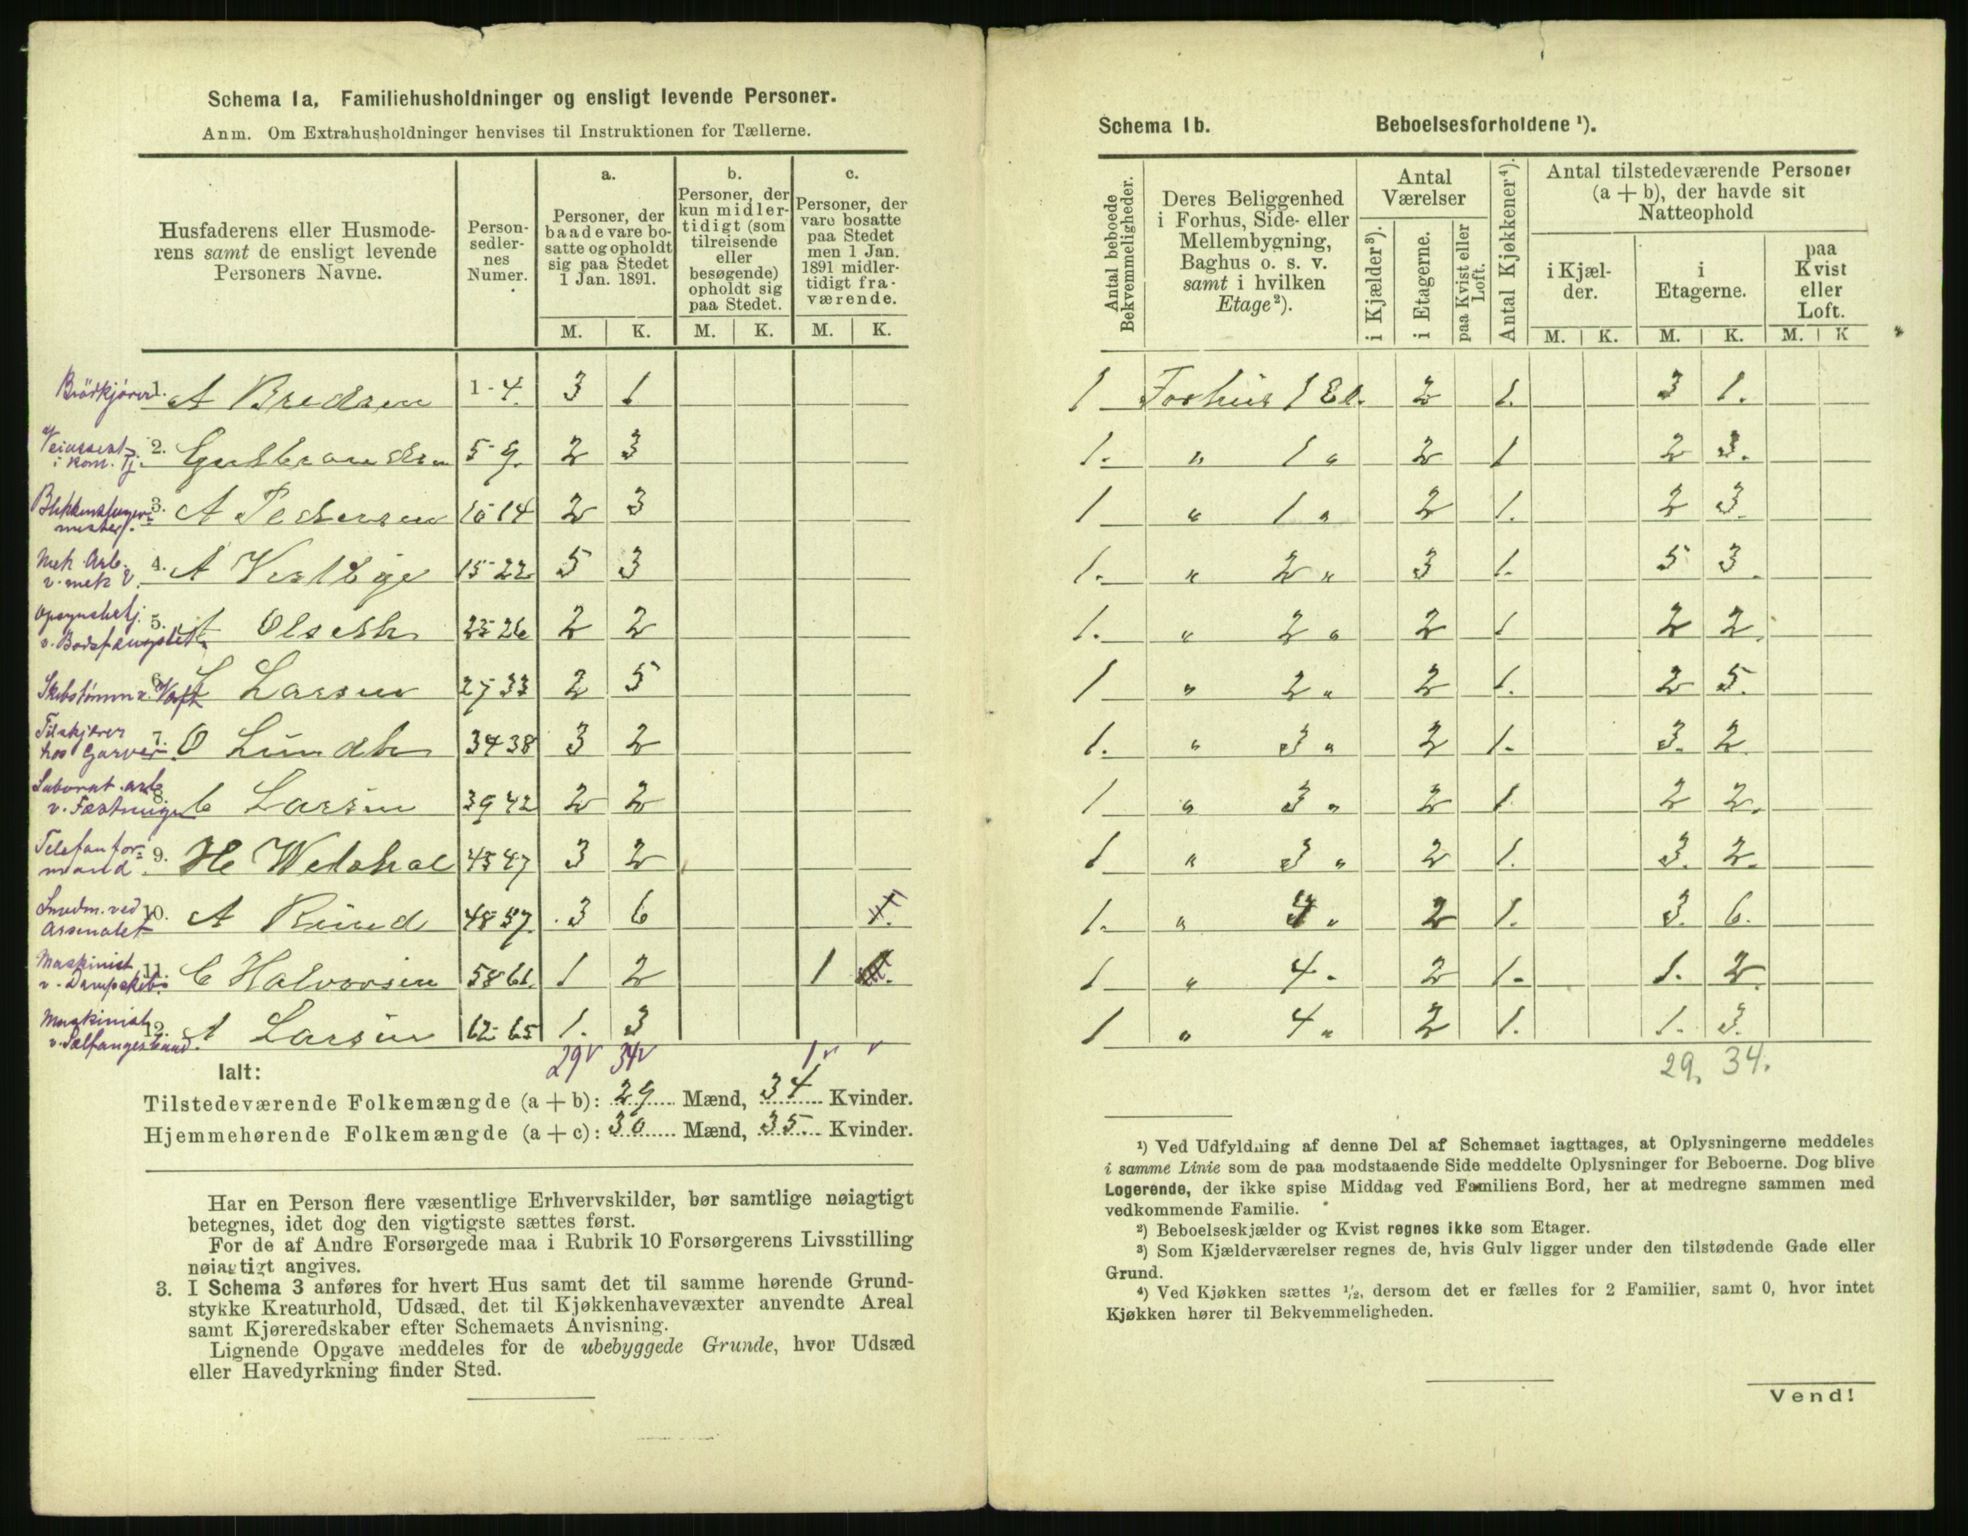 Schema 1a, Familiehusholdninger og ensligt levende Personer.
Anm. Om Extrahusholdninger henvises til Instruktionen for Tællerne.
Husfaderens eller Husmoderens samt de ensligt levende Personers Navne.
Personsedlernes Numer.
a. Personer, der baade vare bosatte og opholdt sig paa Stedet 1 Jan. 1891.
b. Personer, der kun midlertidigt (som tilreisende eller besøgende) opholdt sig paa Stedet.
c. Personer, der vare bosatte paa Stedet men 1 Jan. 1891 midlertidigt fraværende.
M. K. M. K. M. K.
Brödkjører 1. A Bredsen 1-4. 3 1
2. Gulbrandsen 5-9. 2 3
Blikkenslagermester. 3. A Pedersen 10 14 2 3
Mek Arb. v. mek V. 4. A Vestbye 15-22 5 3
5. A Olsen 23-26 2 2
6. L Larsen 27 33 2 5
hos Garver. 7. O Lundh 34 38 3 2
Laborat. arb v. Fæstningen 8. C Larsen 39 42 2 2
Telefonformand. 9. H Welohal 43 47 3 2
Smedm. ved Arsenalet 10. A Rund 48 57. 3 6 1.
Maskinist v. Dampskib 11. C Halvorsen 58 61. 1 2 1
Maskinist v. Sælfangeskuud. 12. A Larsen 62-65 1. 3
29 v 34 v 1 v v
Ialt:
Tilstedeværende Folkemængde (a + b): 29 Mænd, 34 Kvinder.
Hjemmehørende Folkemængde (a + c): 30 Mænd, 35 Kvinder.
Har en Person flere væsentlige Erhvervskilder, bør samtlige nøiagtigt
betegnes, idet dog den vigtigste sættes først.
For de af Andre Forsørgede maa i Rubrik 10 Forsørgerens Livsstilling
nøiagtigt angives.
3. I Schema 3 anføres for hvert Hus samt det til samme hørende Grund-
stykke Kreaturhold, Udsæd, det til Kjøkkenhavevæxter anvendte Areal
samt Kjøreredskaber efter Schemaets Anvisning.
Lignende Opgave meddeles for de ubebyggede Grunde, hvor Udsæd
eller Havedyrkning finder Sted.
Schema 1b. Beboelsesforholdene ¹).
Antal beboede Bekvemmeligheder.
Deres Beliggenhed i Forhus, Side- eller Mellembygning, Baghus o. s. v. samt i hvilken Etage²).
Antal Værelser
i Kjælder³).
i Etagerne.
paa Kvist eller Loft.
Antal Kjøkkener⁴).
Antal tilstedeværende Personer (a + b), der havde sit Natteophold
i Kjælder.
i Etagerne.
paa Kvist eller Loft.
M. K. M. K. M. K
1 Forhus 1 Et. 2 1. 3 1.
1. " 1 " 2 1 2 3.
1 " 1 " 2 1. 2 3.
1. " 2 " 3 1. 5 3.
1. " 2 " 2 1 2 2.
1 " 2 " 2 1. 2 5.
1. " 3 " 2 1. 3. 2.
1 " 3 " 2 1. 2 2.
1 " 3 " 2 1. 3. 2.
1. " 4 " 2 1. 3. 6.
1 " 4. 2 1. 1. 2.
1 " 4 " 2 1. 1. 3.
29. 34.
¹) Ved Udfyldning af denne Del af Schemaet iagttages, at Oplysningerne meddeles
i samme Linie som de paa modstaaende Side meddelte Oplysninger for Beboerne. Dog blive
Logerende, der ikke spise Middag ved Familiens Bord, her at medregne sammen med
vedkommende Familie.
²) Beboelseskjælder og Kvist regnes ikke som Etager.
³) Som Kjælderværelser regnes de, hvis Gulv ligger under den tilstødende Gade eller
Grund.
⁴) Ved Kjøkken sættes ½, dersom det er fælles for 2 Familier, samt 0, hvor intet
Kjøkken hører til Bekvemmeligheden.
Vend!